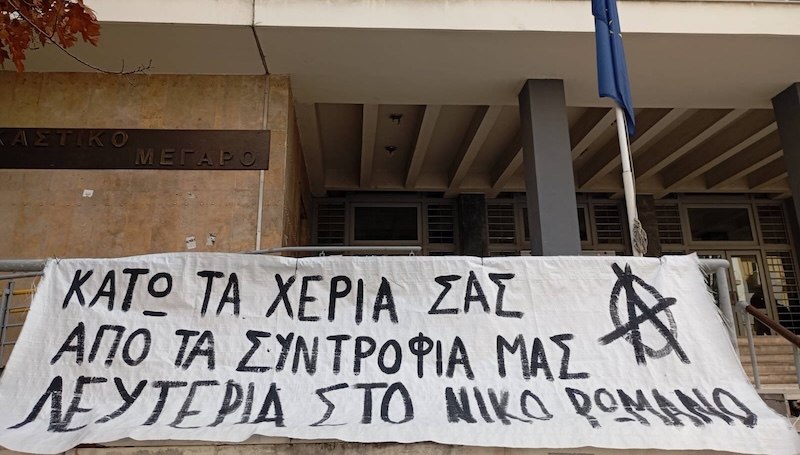 ΚΑΣΤΙΚΟ
ΜΕΓΑΡΟ
ΚΑΤΩ ΤΑ ΧΕΡΙΑ ΣΑΣ
ΑΠΟ ΤΑ ΣΥΝΤΡΟΦΙΑ ΜΑΣ
ΛΕΥΤΕΡΙΑ ΣΤΟ ΝΙΚΟ ΡΩΜΑΝΟ